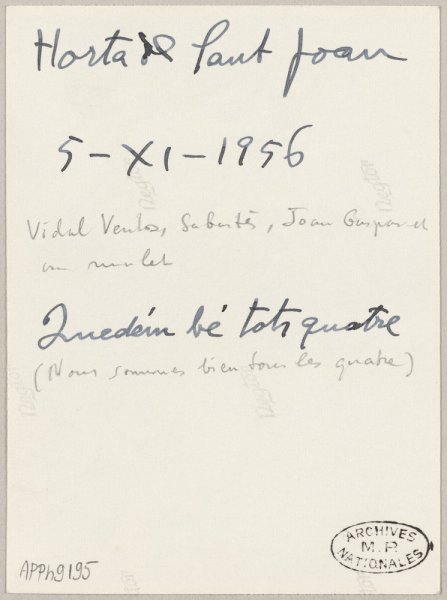 Horta de Sant Joan
5-XI-1956
Vidal Ventos, Sabartès, Joan Gaspar et
un mulet
Quedém bé tots quatre
(Nous sommes bien tous les quatre)
ARCHIVES
M.P.
NATIONALES
APPh9195